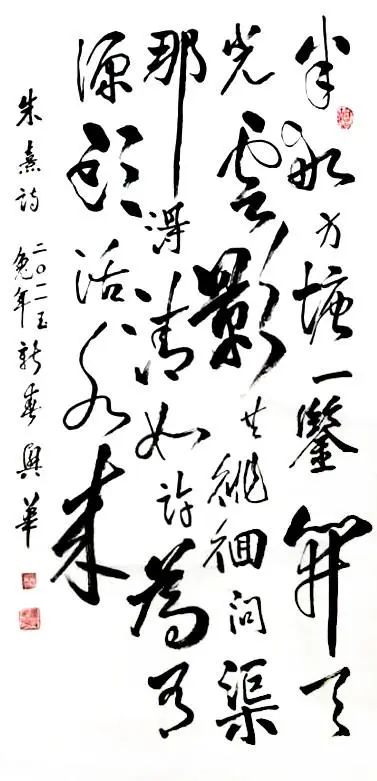 半亩方塘一鑒開天
光雲影共徘徊問渠
那得清如許為有
源頭活水來
朱熹詩 二〇一一玉兔年新春興華